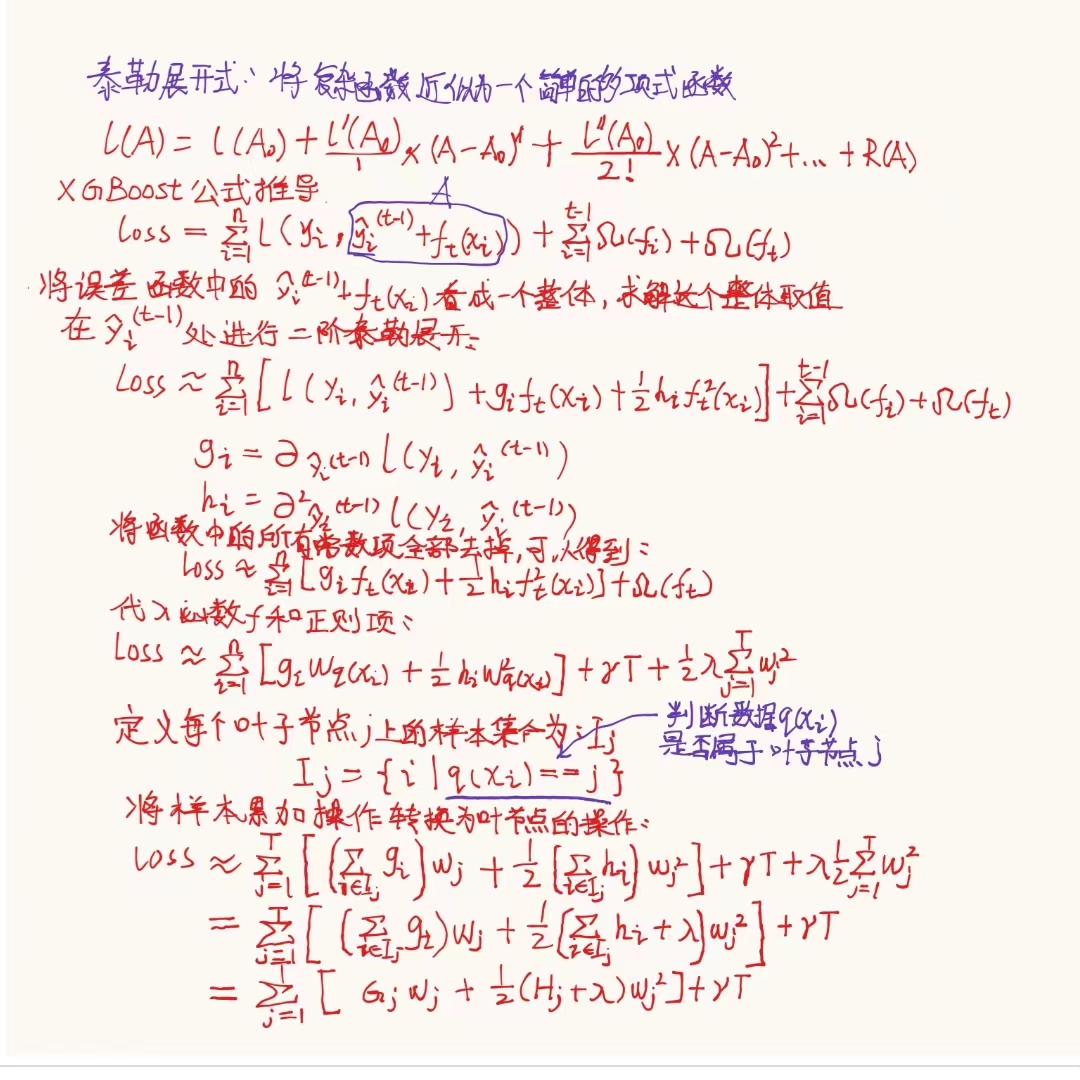 泰勒展开式：将复杂函数近似为一个简单的多项式函数
L(A) = l(A₀) + L'(A₀)/1 × (A-A₀)¹ + L''(A₀)/2! × (A-A₀)² + ... + R(A)
XGBoost公式推导
A
Loss = Σ_{i=1}^{n} L(yᵢ, ŷᵢ^(t-1) + fₜ(xᵢ)) + Σ_{i=1}^{t-1} Ω(fᵢ) + Ω(fₜ)
将误差函数中的 ŷᵢ^(t-1) + fₜ(xᵢ) 看成一个整体，求解这个整体取值
在 ŷᵢ^(t-1) 处进行二阶泰勒展开：
Loss ≈ Σ_{i=1}^{n} [l(yᵢ, ŷᵢ^(t-1)) + gᵢfₜ(xᵢ) + ½hᵢfₜ²(xᵢ)] + Σ_{i=1}^{t-1} Ω(fᵢ) + Ω(fₜ)
gᵢ = ∂_{ŷᵢ^(t-1)} l(yᵢ, ŷᵢ^(t-1))
hᵢ = ∂²_{ŷᵢ^(t-1)} l(yᵢ, ŷᵢ^(t-1))
将函数中的所有常数项全部去掉，可以得到：
Loss ≈ Σ_{i=1}^{n} [gᵢfₜ(xᵢ) + ½hᵢfₜ²(xᵢ)] + Ω(fₜ)
代入函数f和正则项：
Loss ≈ Σ_{i=1}^{n} [gᵢW_{q(xᵢ)} + ½hᵢW²_{q(xᵢ)}] + γT + ½λΣ_{j=1}^{T} wⱼ²
定义每个叶子节点j上的样本集合为：Iⱼ
判断数据q(xᵢ)
是否属于叶子节点j
Iⱼ = {i | q(xᵢ) == j}
将样本累加操作转换为叶节点的操作：
Loss ≈ Σ_{j=1}^{T} [(Σ_{i∈Iⱼ} gᵢ)wⱼ + ½(Σ_{i∈Iⱼ} hᵢ)wⱼ²] + γT + λ½Σ_{j=1}^{T} wⱼ²
= Σ_{j=1}^{T} [(Σ_{i∈Iⱼ} gᵢ)wⱼ + ½(Σ_{i∈Iⱼ} hᵢ + λ)wⱼ²] + γT
= Σ_{j=1}^{T} [Gⱼwⱼ + ½(Hⱼ + λ)wⱼ²] + γT